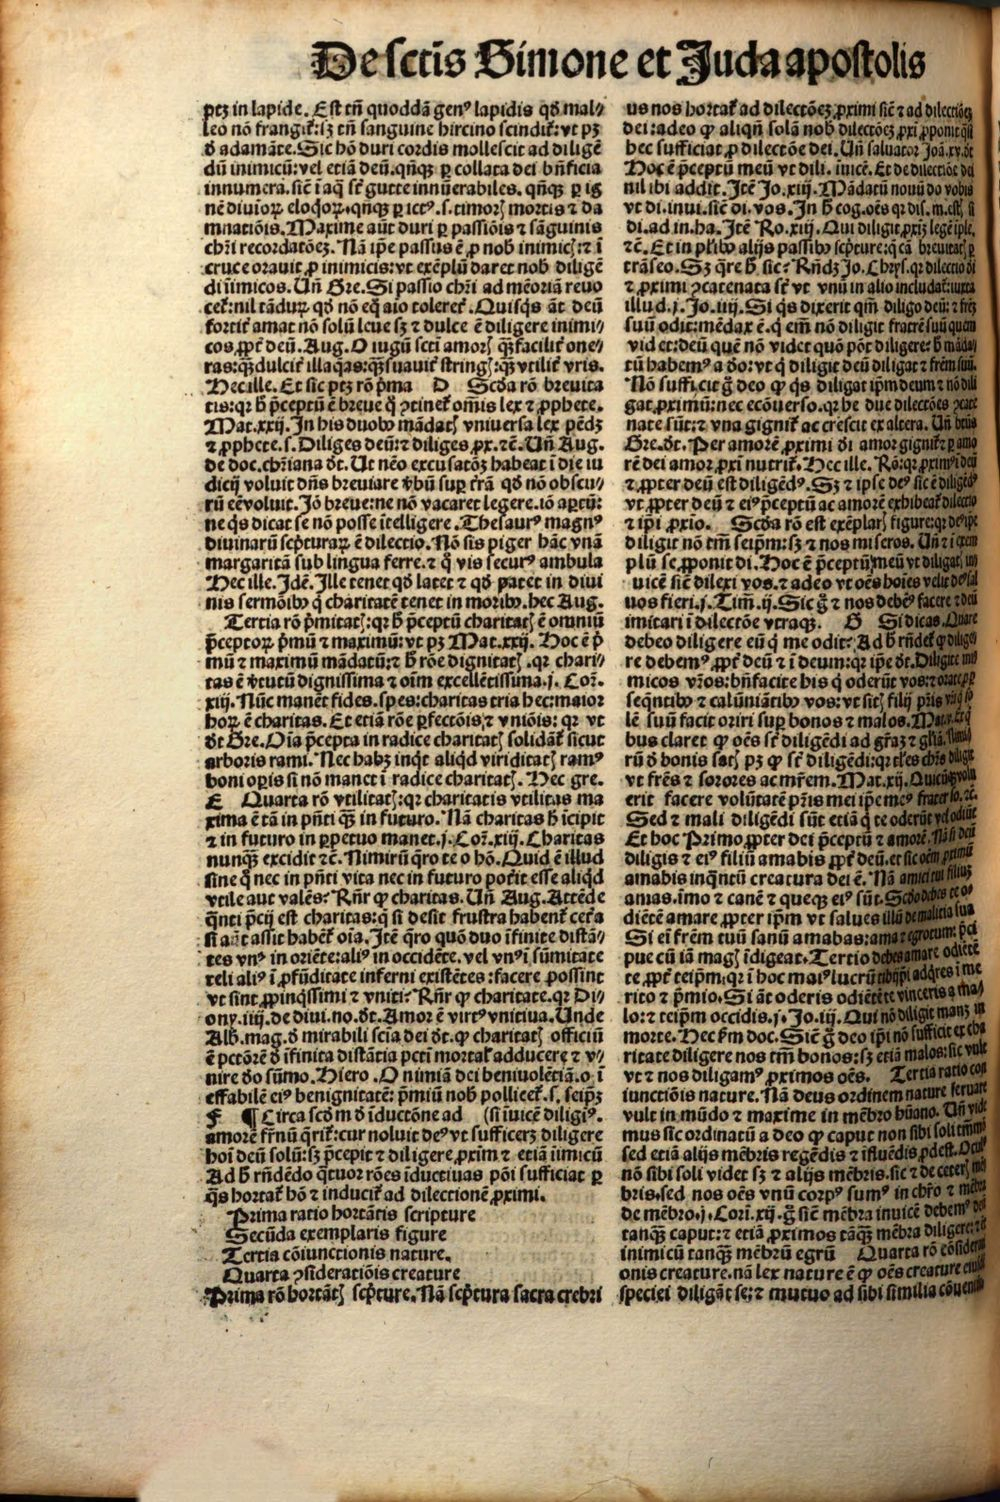 De sctis Simone et Juda apostolis
ptz in lapide. Est tñ quoddã genꝰ lapidis qd mal-
leo nõ frangit᷑: sz tñ sanguine hircino scindit᷑: vt pz
d adamãte. Sic hõ duri cordis mollescit ad diligẽ
dũ inimicũ: vel etiã deũ. qñqz ꝑ collata dei bñficia
innumera. sicut in aq̃ st̃ gutte innũerabiles. qñqz ꝑ ig
nẽ diuinoꝝ eloq̃oꝝ. qñqz ꝑ ictꝰ .s. timorꝭ mortis ⁊ da
mnatiõis. Maxime aũt duri ꝑ passiõis ⁊ sãguinis
chr̃i recordatõez. Nã ip̃e passus ẽ ꝓ nob inimicꝭ: ⁊ ĩ
cruce orauit ꝓ inimicis: vt exẽplũ daret nob diligẽ
di ĩimicos. Uñ Gre. Si passio chr̃i ad mẽoriã reuo
cet᷑: nil tã duꝝ qd nõ eq̃ aĩo toleret᷑. Quisq̃s ãt deũ
fortit᷑ amat nõ solũ leue sz ⁊ dulce ẽ diligere inimi-
cos ꝓpt᷑ deũ. Aug. O iugũ sct̃i amorꝭ qz̃ facilit᷑ one-
ras: qz̃ dulcit᷑ illaq̃as: qz̃ suauit᷑ stringꝭ: qz̃ vtilit᷑ vris.
Hec ille. Et sic ptz rõ p̃ma D Scd̃a rõ breuita
tis: qr h̃ p̃ceptũ ẽ breue q̃ ꝯtinet᷑ om̃is lex ⁊ ꝓphete.
Mat. xxij. In his duobꝰ mãdatꝭ vniuersa lex pẽdz
⁊ ꝓphete .s. Diliges deũ: ⁊ diliges ꝓx. ⁊c̃. Uñ Aug.
de doc. chr̃iana dt̃. Ut nẽo excusatõz habeat ĩ die iu
dicij voluit dñs breuiare v̓bũ suꝑ t̃rã qd nõ obscu-
rũ eẽ voluit. Iõ breue: ne nõ vacaret legere. iõ aꝑtũ:
ne q̃s dicat se nõ posse ĩtelligere. Thesaurꝰ magnꝰ
diuinarũ sc̃pturaꝝ ẽ dilectio. Nõ sis piger hãc vnã
margaritã sub lingua ferre. ⁊ q̃ vis securꝰ ambula
Hec ille. Idẽ. Ille tenet qd latet ⁊ qd patet in diui
nis sermõibꝰ q̃ charitatẽ tenet in moribꝰ. hec Aug.
Tertia rõ p̃mitatꝭ: qr h̃ p̃ceptũ charitatꝭ ẽ omniũ
p̃ceptoꝝ p̃mũ ⁊ maximũ: vt pz Mat. xxij. Hoc ẽ p̃
mũ ⁊ maximũ mãdatũ: ⁊ h̃ rõe dignitatꝭ. qr chari-
tas ẽ v̓tutũ dignissima ⁊ oĩm excellẽtissima. j. Cor̃.
xiij. Nũc manẽt fides. spes: charitas tria hec: maior
hoꝝ ẽ charitas. Et etiã rõe ꝑfectõis, ⁊ vniõis: qr vt
dt̃ Gre. Oĩa p̃cepta in radice charitatꝭ solidãt᷑ sicut
arboris rami. Nec habz inq̃t aliqd viriditatꝭ ramꝰ
boni oꝑis si nõ manet ĩ radice charitatꝭ. Hec gre.
E Quarta rõ vtilitatꝭ: qr charitatis vtilitas ma
xima ẽ tã in pñti qz̃ in futuro. Nã charitas h̃ ĩcipit
⁊ in futuro in ꝑpetuo manet. j. Cor̃. xiij. Charitas
nunqz̃ excidit ⁊c̃. Nimirũ q̃ro te o hõ. Quid ẽ illud
sine q̃ nec in pñti vita nec in futuro pot̃it esse aliqd
vtile aut valẽs? Rñr ꝙ charitas. Uñ Aug. Attẽde
q̃nti p̃cij est charitas: q̃ si desit frustra habent᷑ cet̃a
si aut assit habẽt᷑ oĩa. Itẽ q̃ro quõ duo ĩfinite distã-
tes vnꝰ in oriẽte: aliꝰ in occidẽte. vel vnꝰ ĩ sũmitate
celi aliꝰ ĩ ꝓfũditate inferni existẽtes: facere possint
vt sint ꝓpinq̃ssimi ⁊ vniti? Rñr ꝙ charitate. qr Di-
ony. iiij. de diui. no. dt̃. Amor ẽ virtꝰ vnitiua. Unde
Alb. mag. d mirabili scĩa dei dt̃. ꝙ charitatꝭ officiũ
ẽ pctõrẽ d ĩfinita distãtia pcti mortaꝉ adducere ⁊ v-
nire deo sũmo. Hiero. O nimiã dei beniuolẽtiã. o ĩ
effabilẽ eiꝰ benignitatẽ: p̃miũ nob polliceť .s. seip̃z
F ¶ Circa scd̃m d ĩductõne ad (si ĩuicẽ diligiꝰ.
amorẽ fr̃nũ q̃rit᷑: cur noluit deꝰ vt sufficerz diligere
hoĩ deũ solũ: sz p̃cepit ⁊ diligere ꝓxim̃ ⁊ etiã ĩimicũ
Ad h̃ rñdẽdo q̃tuor rões ĩductiuas põi sufficiat ꝑ
q̃s hortat᷑ hõ ⁊ inducit᷑ ad dilectionẽ ꝓximi.
Prima ratio hortãtis scripture
Secũda exemplaris figure
Tertia cõiunctionis nature.
Quarta ꝯsideratiõis creature
Prima rõ hortãtꝭ sc̃pture. Nã sc̃ptura sacra crebri
us nos hortat᷑ ad dilectõez ꝓximi sicut ⁊ ad dilectõez
dei: adeo ꝙ aliqñ solã nob dilectõez ꝓxi ꝓponit q̃si
hec sufficiat ꝓ dilectõe dei. Uñ saluator Joã. xv. dt̃
Hoc ẽ p̃ceptũ meũ vt dili. inuicẽ. Et de dilectõe dei
nil ibi addit. Itẽ Jo. xiij. Mãdatũ nouũ do vobis
vt di. inui. sicut di. vos. In h̃ cog. oẽs qr dis. m. estꝭ si
di. ad in. ha. Itẽ Ro. xiij. Qui diligit ꝓxiz legẽ iple.
⁊c̃. Et in pl̃ibꝰ alijs passibꝰ sc̃pture: q̃ cã breuitatꝭ p
trãseo. Sz q̃re h̃ sic? Rñdz Jo. Chrys. qr dilectio di
⁊ ꝓximi ꝯcatenata st̃ vt vnũ in alio includat᷑: iuxta
illud. j. Jo. iiij. Si q̃s dixerit qm̃ diligo deũ: ⁊ fr̃ez
suũ odit: mẽdax ẽ. q̃ em̃ nõ diligit fratrẽ suũ quem
videt: deũ quẽ nõ videt quõ põt diligere? h̃ mãda-
tũ habemꝰ a deo: vt q̃ diligit deũ diligat ⁊ fr̃em suũ.
Nõ sufficit g̃ deo ꝙ q̃s diligat ip̃m deum ⁊ nõ dili
gat ꝓximũ: nec ecõuerso. qr he due dilectões ꝯcate
nate sũt: ⁊ vna gignit᷑ ac crescit ex altera. Uñ btũs
Gre. dt̃. Per amorẽ ꝓximi di amor gignit᷑ ⁊ ꝑ amo
rẽ dei amor ꝓxĩ nutrit᷑. Hec ille. Rõ: qr ꝓximꝰ ĩ deũ
⁊ ꝓpter deũ est diligẽdꝰ. Sz ⁊ ipse deꝰ sic ẽ diligẽdꝰ
vt ꝓpter deũ ⁊ eiꝰ p̃ceptũ ac amorẽ exhibeat᷑ dilectio
⁊ ip̃i ꝓxio. Scd̃a rõ est exẽplarꝭ figure: qr deꝰ ip̃e
diligit nõ tm̃ seip̃m: sz ⁊ nos miseros. Uñ ⁊ ĩ exem
plũ se ꝓponit di. Hoc ẽ p̃ceptũ meũ vt diligat. in
uicẽ sicut dilexi vos. ⁊ adeo vt oẽs hoĩes velit deꝰ sal
uos fieri. j. Tim̃. ij. Sic g̃ ⁊ nos debeꝰ facere ⁊ deũ
imitari ĩ dilectõe vtraqz. G Si dicas. Quare
debeo diligere eũ q̃ me odit? Ad h̃ rñdet᷑ ꝙ dilige
re debemꝰ ꝓpt᷑ deũ ⁊ ĩ deum: qr ip̃e dt̃. Diligite ini
micos vr̃os: bñfacite his q̃ oderũt vos: ⁊ orate ꝑ ꝑ
seq̃ntibꝰ ⁊ calũniãtibꝰ vos: vt sitꝭ filij pr̃is vr̃i q̃ so
lẽ suũ facit oriri suꝑ bonos ⁊ malos. Mat. v. Et q̃
bus claret ꝙ oẽs st̃ diligẽdi ad gr̃az ⁊ gl̃iã. Nimi
rũ d bonis satꝭ pz ꝙ st̃ diligẽdi: qr tl̃es chr̃s diligit
vt fr̃es ⁊ sorores ac mr̃em. Mat. xij. Quicũqz volu
erit facere volũtatẽ pr̃is mei ip̃e meꝰ frater so. ⁊c̃.
Sed ⁊ mali diligẽdi sũt etiã q̃ te oderũt vel odiũt
Et hoc Primo ꝓpter dei p̃ceptũ ⁊ amorẽ. Nã si deũ
diligis ⁊ eiꝰ filiũ amabis ꝓpt᷑ deũ. et sic oẽm ꝓximũ
amabis inq̃ntũ creatura dei ẽ. Nã amici tui filius
amas. ĩmo ⁊ canẽ ⁊ queqz eiꝰ sũt. Scd̃o debes te o
diẽtẽ amare ꝓpter ip̃m vt salues illũ de malicia sua
Si eĩ fr̃em tuũ sanũ amabas: ama ⁊ egrotum: p̃ci
pue cũ iã magꝭ ĩdigeat. Tertio debes amare odiẽtẽ
te ꝓpt᷑ teip̃m: qr ĩ hoc maiꝰ lucrũ tibijp̃i adq̃res ĩ me
rito ⁊ p̃mio. Si ãt oderis odiẽtẽ te vinceris a ma-
lo: ⁊ teip̃m occidis. j. Jo. iij. Qui nõ diligit manz in
morte. Hec ẽm doc. Sicut g̃ deo ip̃i nõ sufficit ex cha
ritate diligere nos tm̃ bonos: sz etiã malos: sic vult
vt ⁊ nos diligamꝰ ꝓximos oẽs. Tertia ratio con
iunctiõis nature. Nã deus ordinem nature seruare
vult in mũdo ⁊ maxime in mẽbro hũano. Uñ vide
mus sic ordinatũ a deo ꝙ caput non sibi soli tm̃mõ
sed etiã alijs mẽbris regẽdis ⁊ ĩfluẽdis ꝓdest. Ocul
nõ sibi soli videt sz ⁊ alijs mẽbris. sic ⁊ de ceterꝭ mẽ
bris. sed nos oẽs vnũ corpꝰ sumꝰ in chr̃o ⁊ mẽbra
de mẽbro. j. Cor̃i. xij. g̃ sicut mẽbra inuicẽ debemꝰ dei
tanqz̃ caput: ⁊ etiã ꝓximos tãqz̃ mẽbra diligere: ⁊c̃
inimicũ tanqz̃ mẽbrũ egrũ Quarta rõ cõsiderati
onis creature. nã lex nature ẽ ꝙ oẽs creature eiusdẽ
speciei diligãt se: ⁊ mutuo ad sibi similia cõueniũt